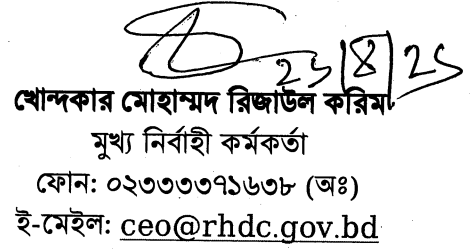 ২১|৪|২৫
খোন্দকার মোহাম্মদ রিজাউল করিম
মুখ্য নির্বাহী কর্মকর্তা
ফোন: ০২৩৩৩৩৭১৬৩৮ (অঃ)
ই-মেইল: ceo@rhdc.gov.bd